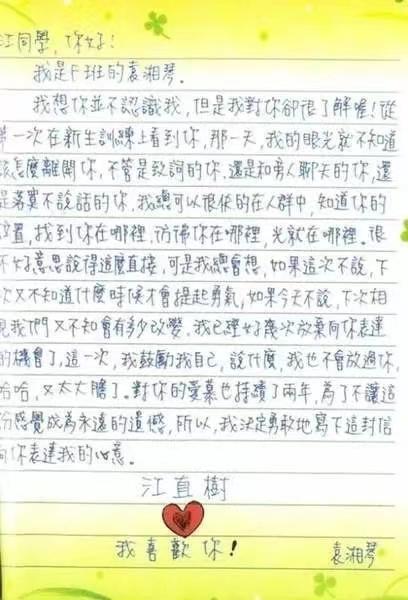 江同學，你好！
我是F班的袁湘琴。
我想你並不認識我，但是我對你卻很了解喔！從
第一次在新生訓練上看到你，那一天，我的眼光就不知道
該怎麼離開你，不管是致詞的你，還是和旁人聊天的你，還
是落寞不說話的你，我總可以很快的在人群中，知道你的
位置，找到你在哪裡，彷彿你在哪裡，光就在哪裡。很
不好意思說得這麼直接，可是我總會想，如果這次不說，下
次又不知道什麼時候才會提起勇氣，如果今天不說，下次相
見我們又不知會有多少改變。我已經好幾次放棄向你表達
的機會了，這一次，我鼓勵我自己，說什麼，我也不會放過你，
哈哈，又太大膽了。對你的愛慕也持續了兩年，為了不讓這
份感覺成為永遠的遺憾，所以，我決定勇敢地寫下這封信
向你表達我的心意。
江直樹
我喜歡你！ 袁湘琴